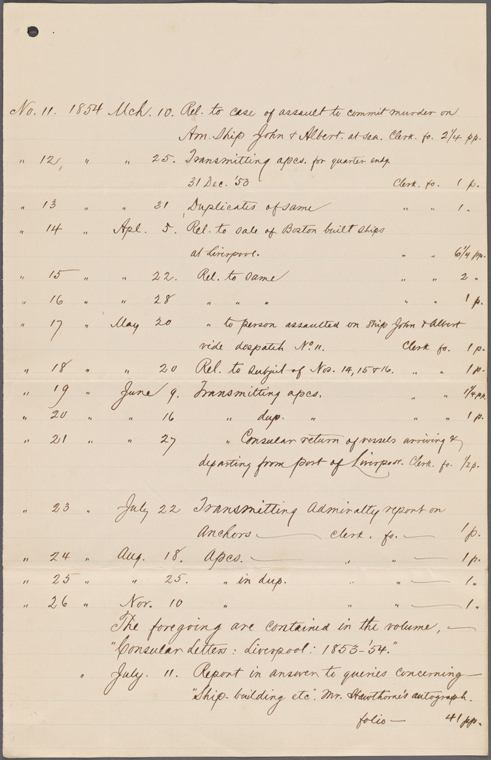 No. 11. 1854 Mch. 10. Rel. to case of assault to commit murder on
Am. Ship John & Albert. at sea. Clerk. fo. 2 1/4 pp.
" 12, " " 25. Transmitting apcs. for quarter endg
31 Dec. '53 Clerk. fo. 1 p.
" 13 " " 31, Duplicates of same " " 1 "
" 14 " Apl. 5. Rel. to sale of Boston built ships
at Liverpool. " " 6 1/4 pp.
" 15 " " 22. Rel. to same " " 2 "
" 16 " " 28 " " " " " 1 p.
" 17 " May 20 " to person assaulted on ship John & Albert
vide despatch No. 11. Clerk fo. 1 p.
" 18 " " 20 Rel. to subjct of Nos. 14, 15 & 16. " " 1 p.
" 19 " June 9. Transmitting apcs. " " 1 1/4 pp.
" 20 " " 16 " dup. " " " 1 p.
" 21 " " 27 " Consular return of vessels arriving &
departing from port of Liverpool. Clerk. fo. 1/2 p.
" 23 " July 22 Transmitting Admiralty report on
Anchors — clerk. fo. — 1 p.
" 24 " Aug. 18. Apcs. — " " — 1 p.
" 25 " " 25. " in dup. " " — 1 "
" 26 " Nov. 10 " " " — 1 "
The foregoing are contained in the volume, —
"Consular Letters: Liverpool: 1853-'54."
" July. 11. Report in answer to queries concerning —
"Ship-building etc". Mr. Hawthorne's autograph.
folio — 41 pp.